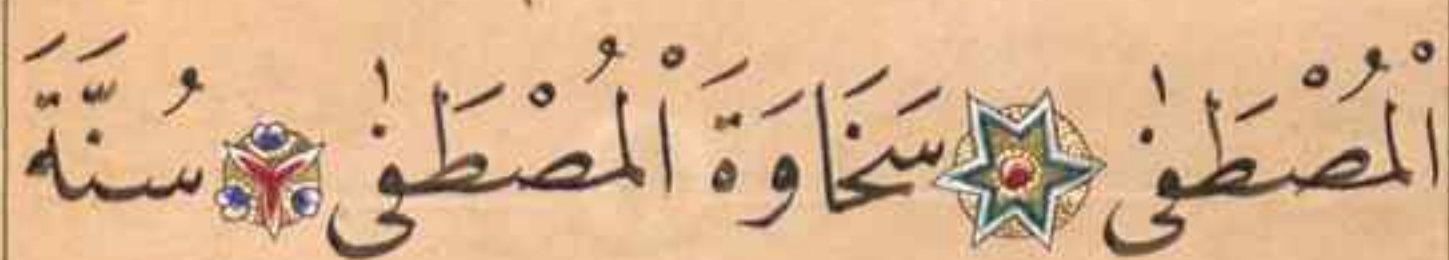 الْمُصْطَفٰى سَخَاوَةَ الْمُصْطَفٰى سُنَّةَ